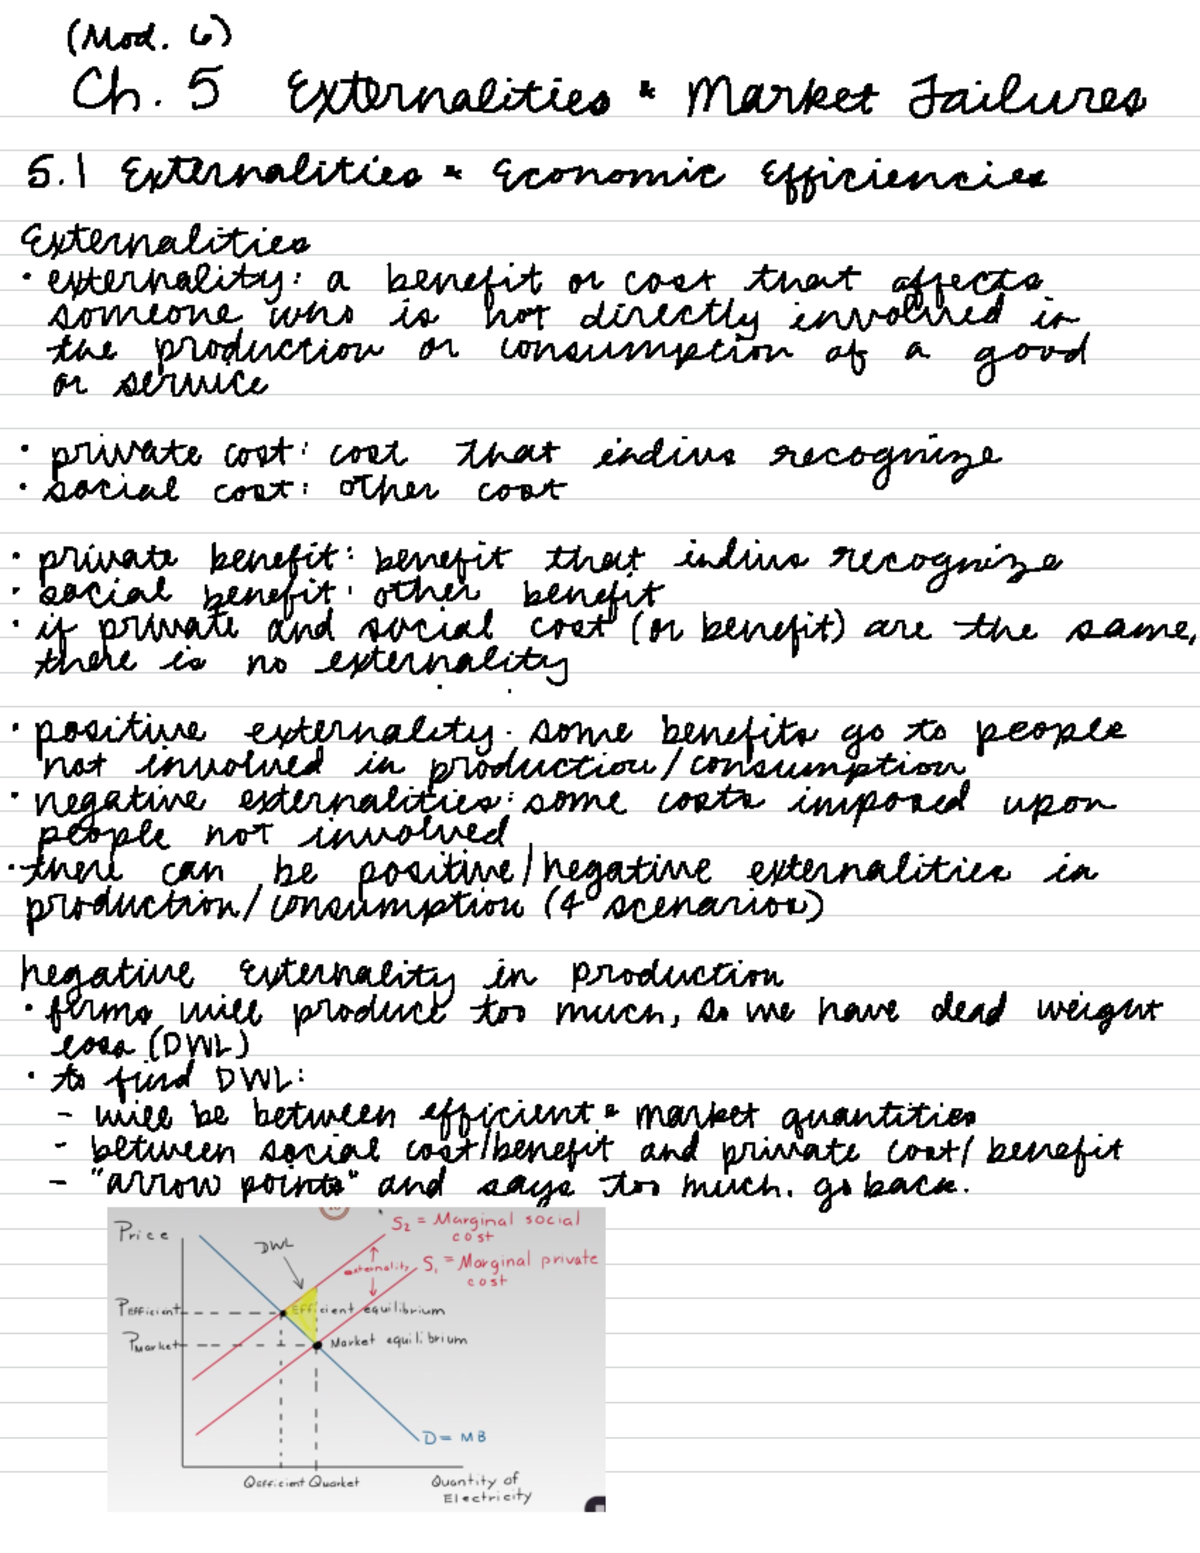 (Mod. 6)
Ch. 5 Externalities & Market Failures
5.1 Externalities & Economic Efficiencies
Externalities
• externality: a benefit or cost that affects
someone who is not directly involved in
the production or consumption of a good
or service
• private cost: cost that indivs recognize
• social cost: other cost
• private benefit: benefit that indivs recognize
• social benefit: other benefit
• if private and social cost (or benefit) are the same,
there is no externality
• positive externality: some benefits go to people
not involved in production/consumption
• negative externalities: some costs imposed upon
people not involved
• there can be positive/negative externalities in
production/consumption (4 scenarios)
negative externality in production
• firms will produce too much, so we have dead weight
loss (DWL)
• to find DWL:
- will be between efficient & market quantities
- between social cost/benefit and private cost/benefit
- "arrow points" and says too much. go back.
Price
DWL
S₂ = Marginal social
cost
externality
S₁ = Marginal private
cost
PEfficient
Efficient equilibrium
PMarket
Market equilibrium
D = MB
QEfficient QMarket
Quantity of
Electricity